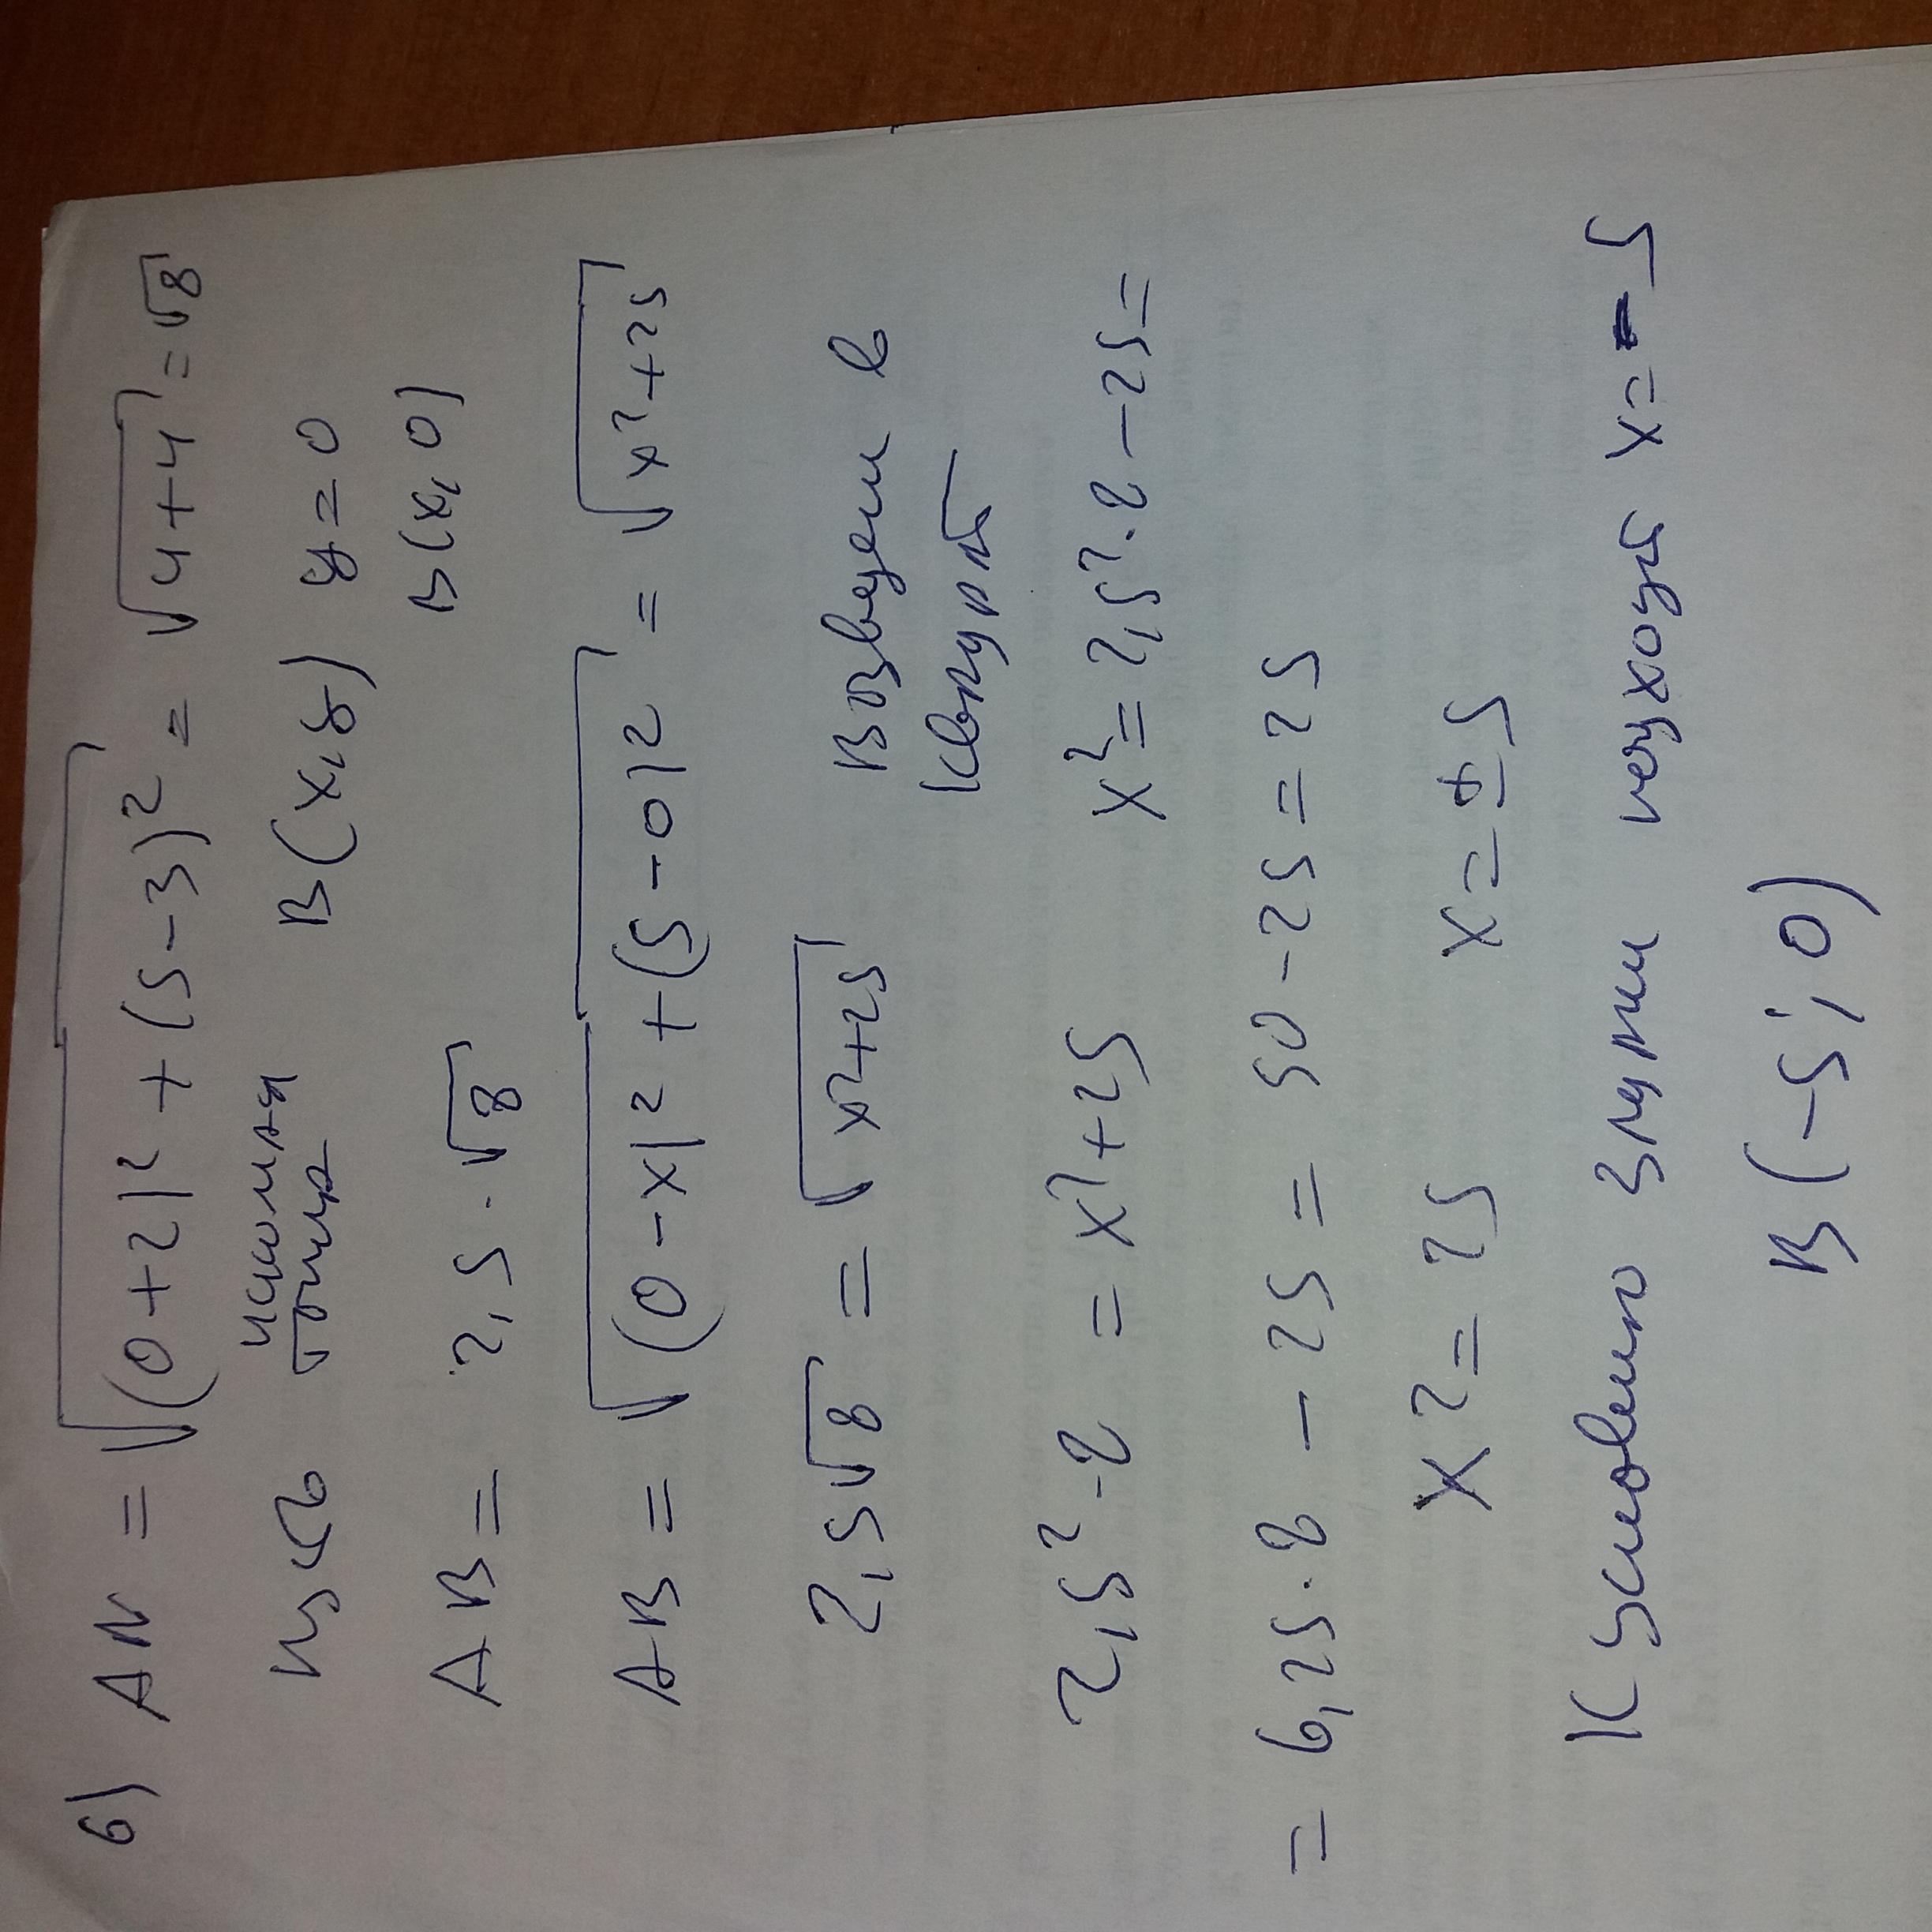 6) AN = √(0+2)² + (5-3)² = √4+4 = √8
Пусть искомая точка B(x,y) y=0
B(x,0)
AB = 2,5 · √8
AB = √(0-x)² + (5-0)² = √x²+25
2,5√8 = √x²+25 Возведем в
квадрат
2,5²·8 = x²+25 x² = 2,5²·8-25=
= 6,25·8 - 25 = 50-25=25
x2=25 x=±5
К условию задачи подходит x=-5
B(-5;0)